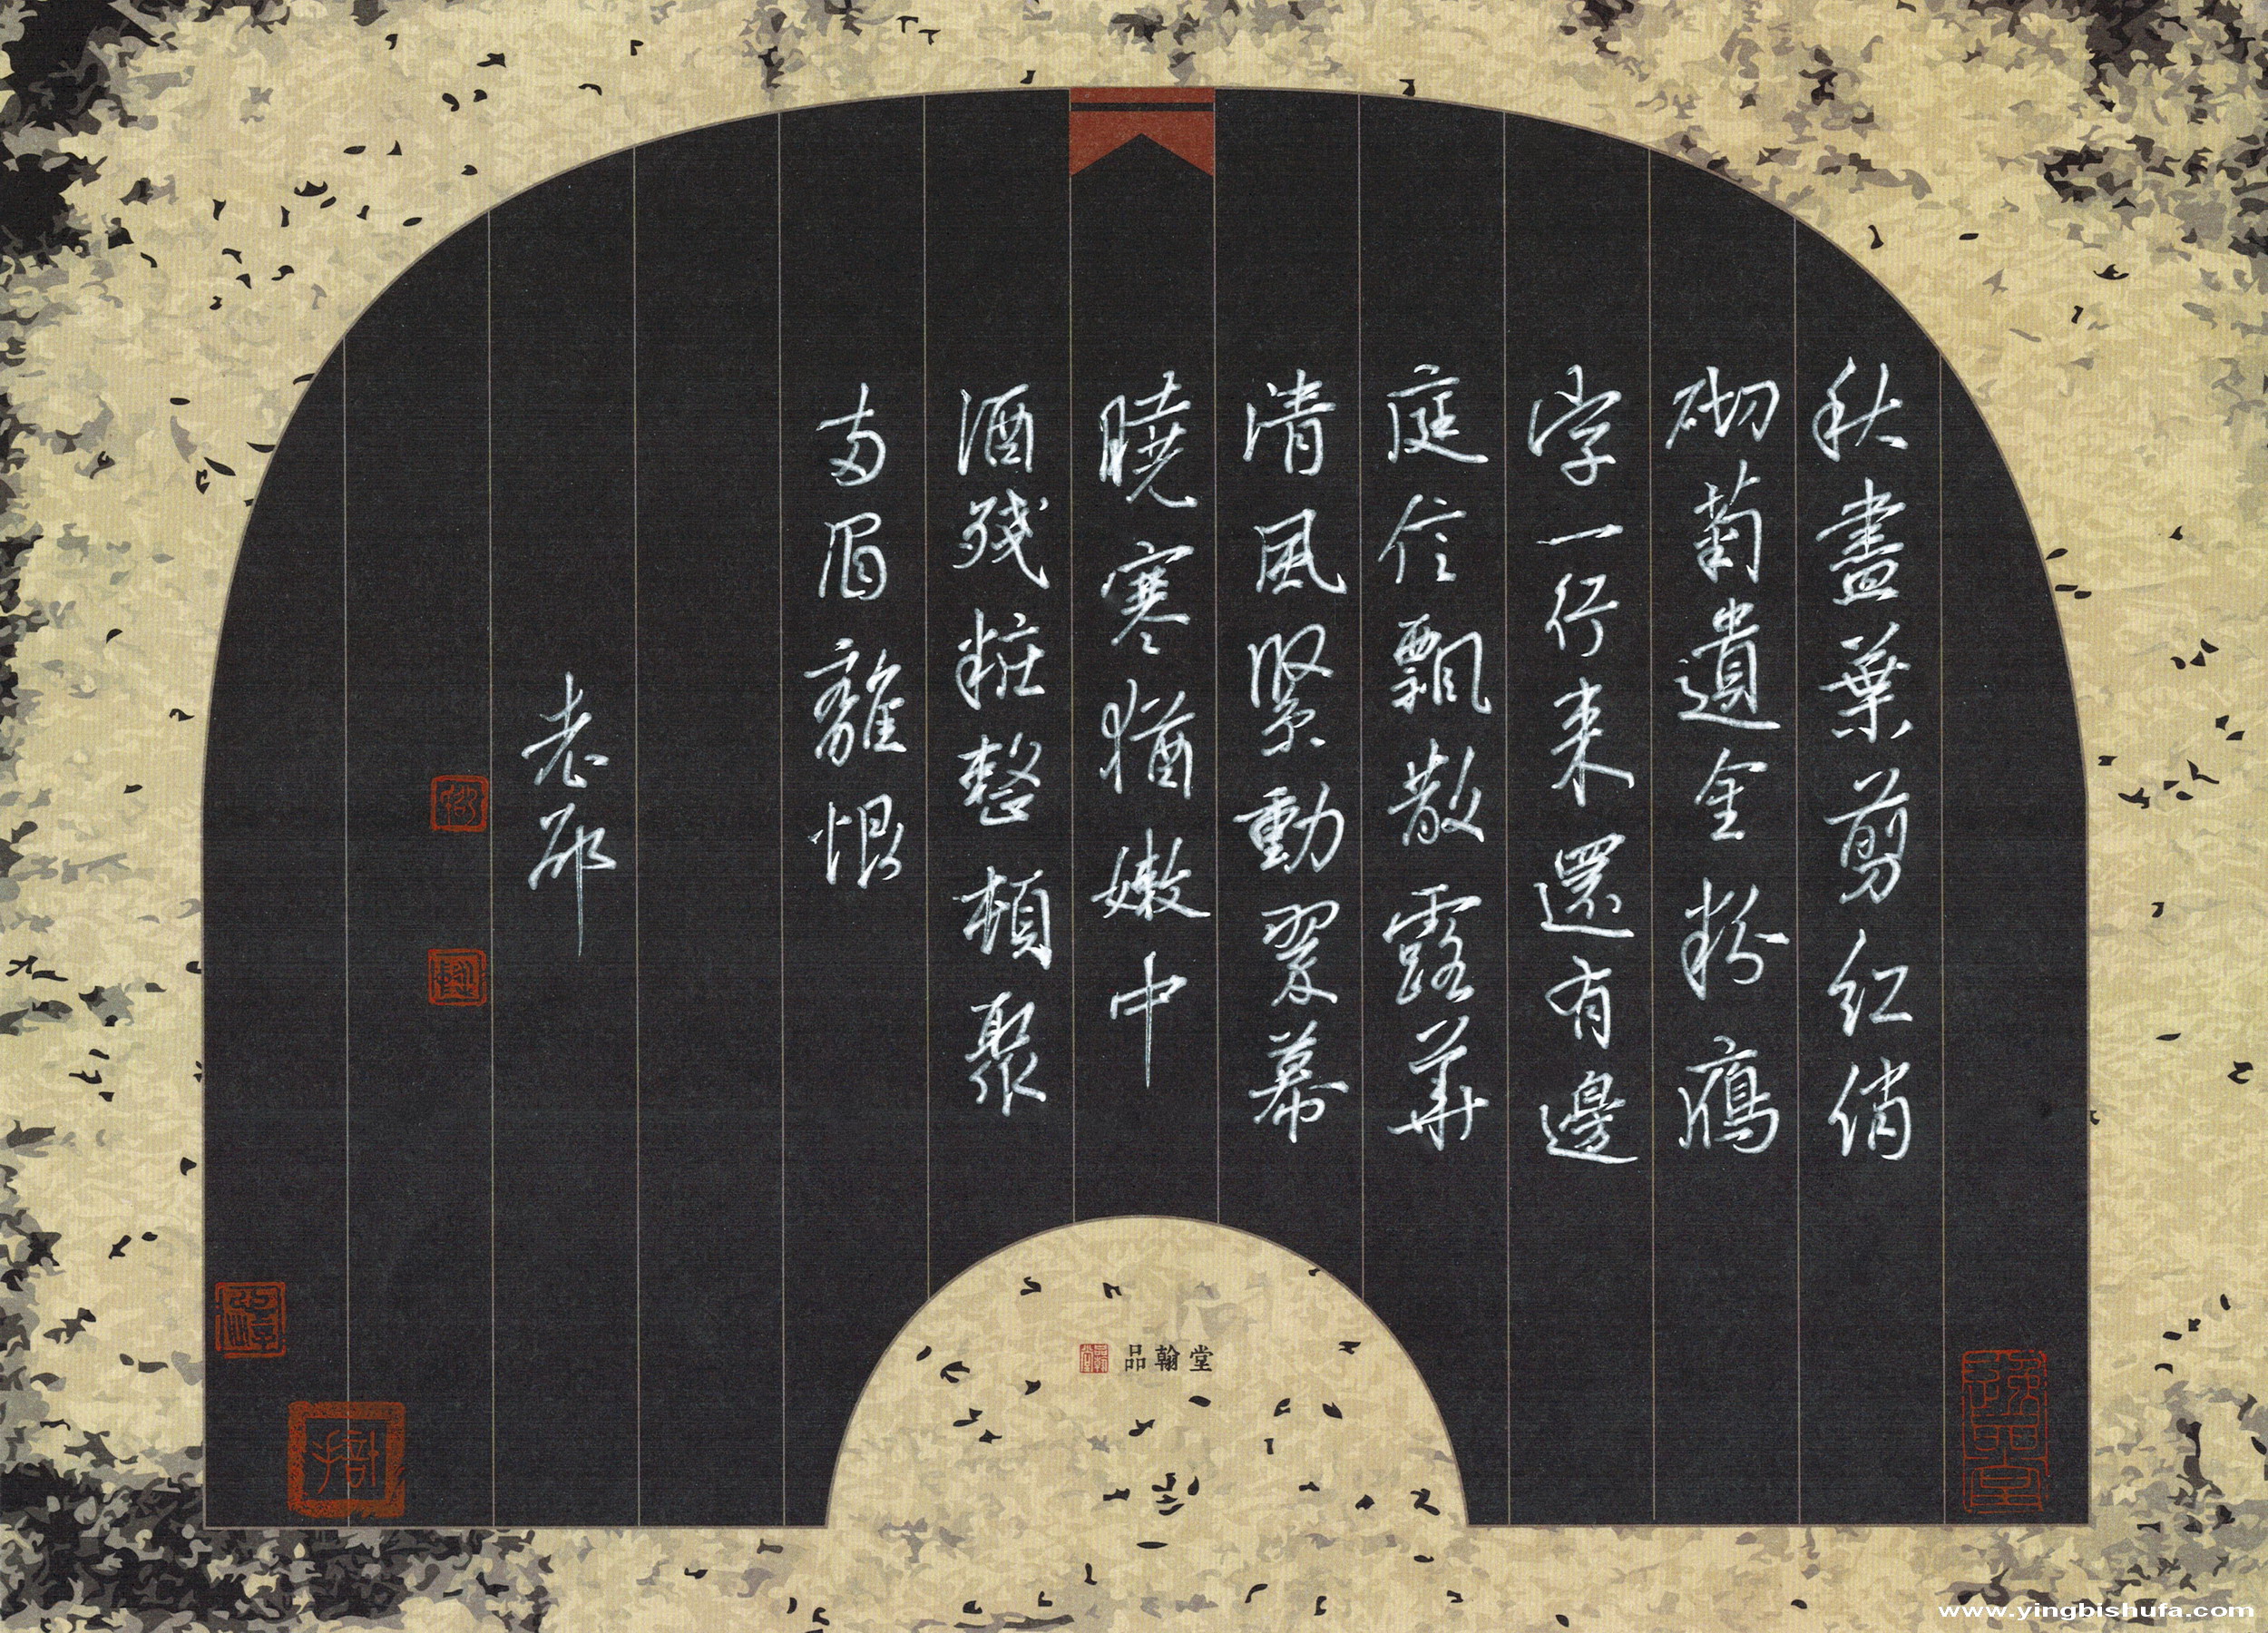 秋盡葉剪紅俏
砌菊遺金粉鴈
字一行来還有邊
庭信飄散露華
清風緊動翠幕
曉寒猶嫩中
酒殘粧整頓聚
两眉離恨
老
品翰堂
www.yingbishufa.com